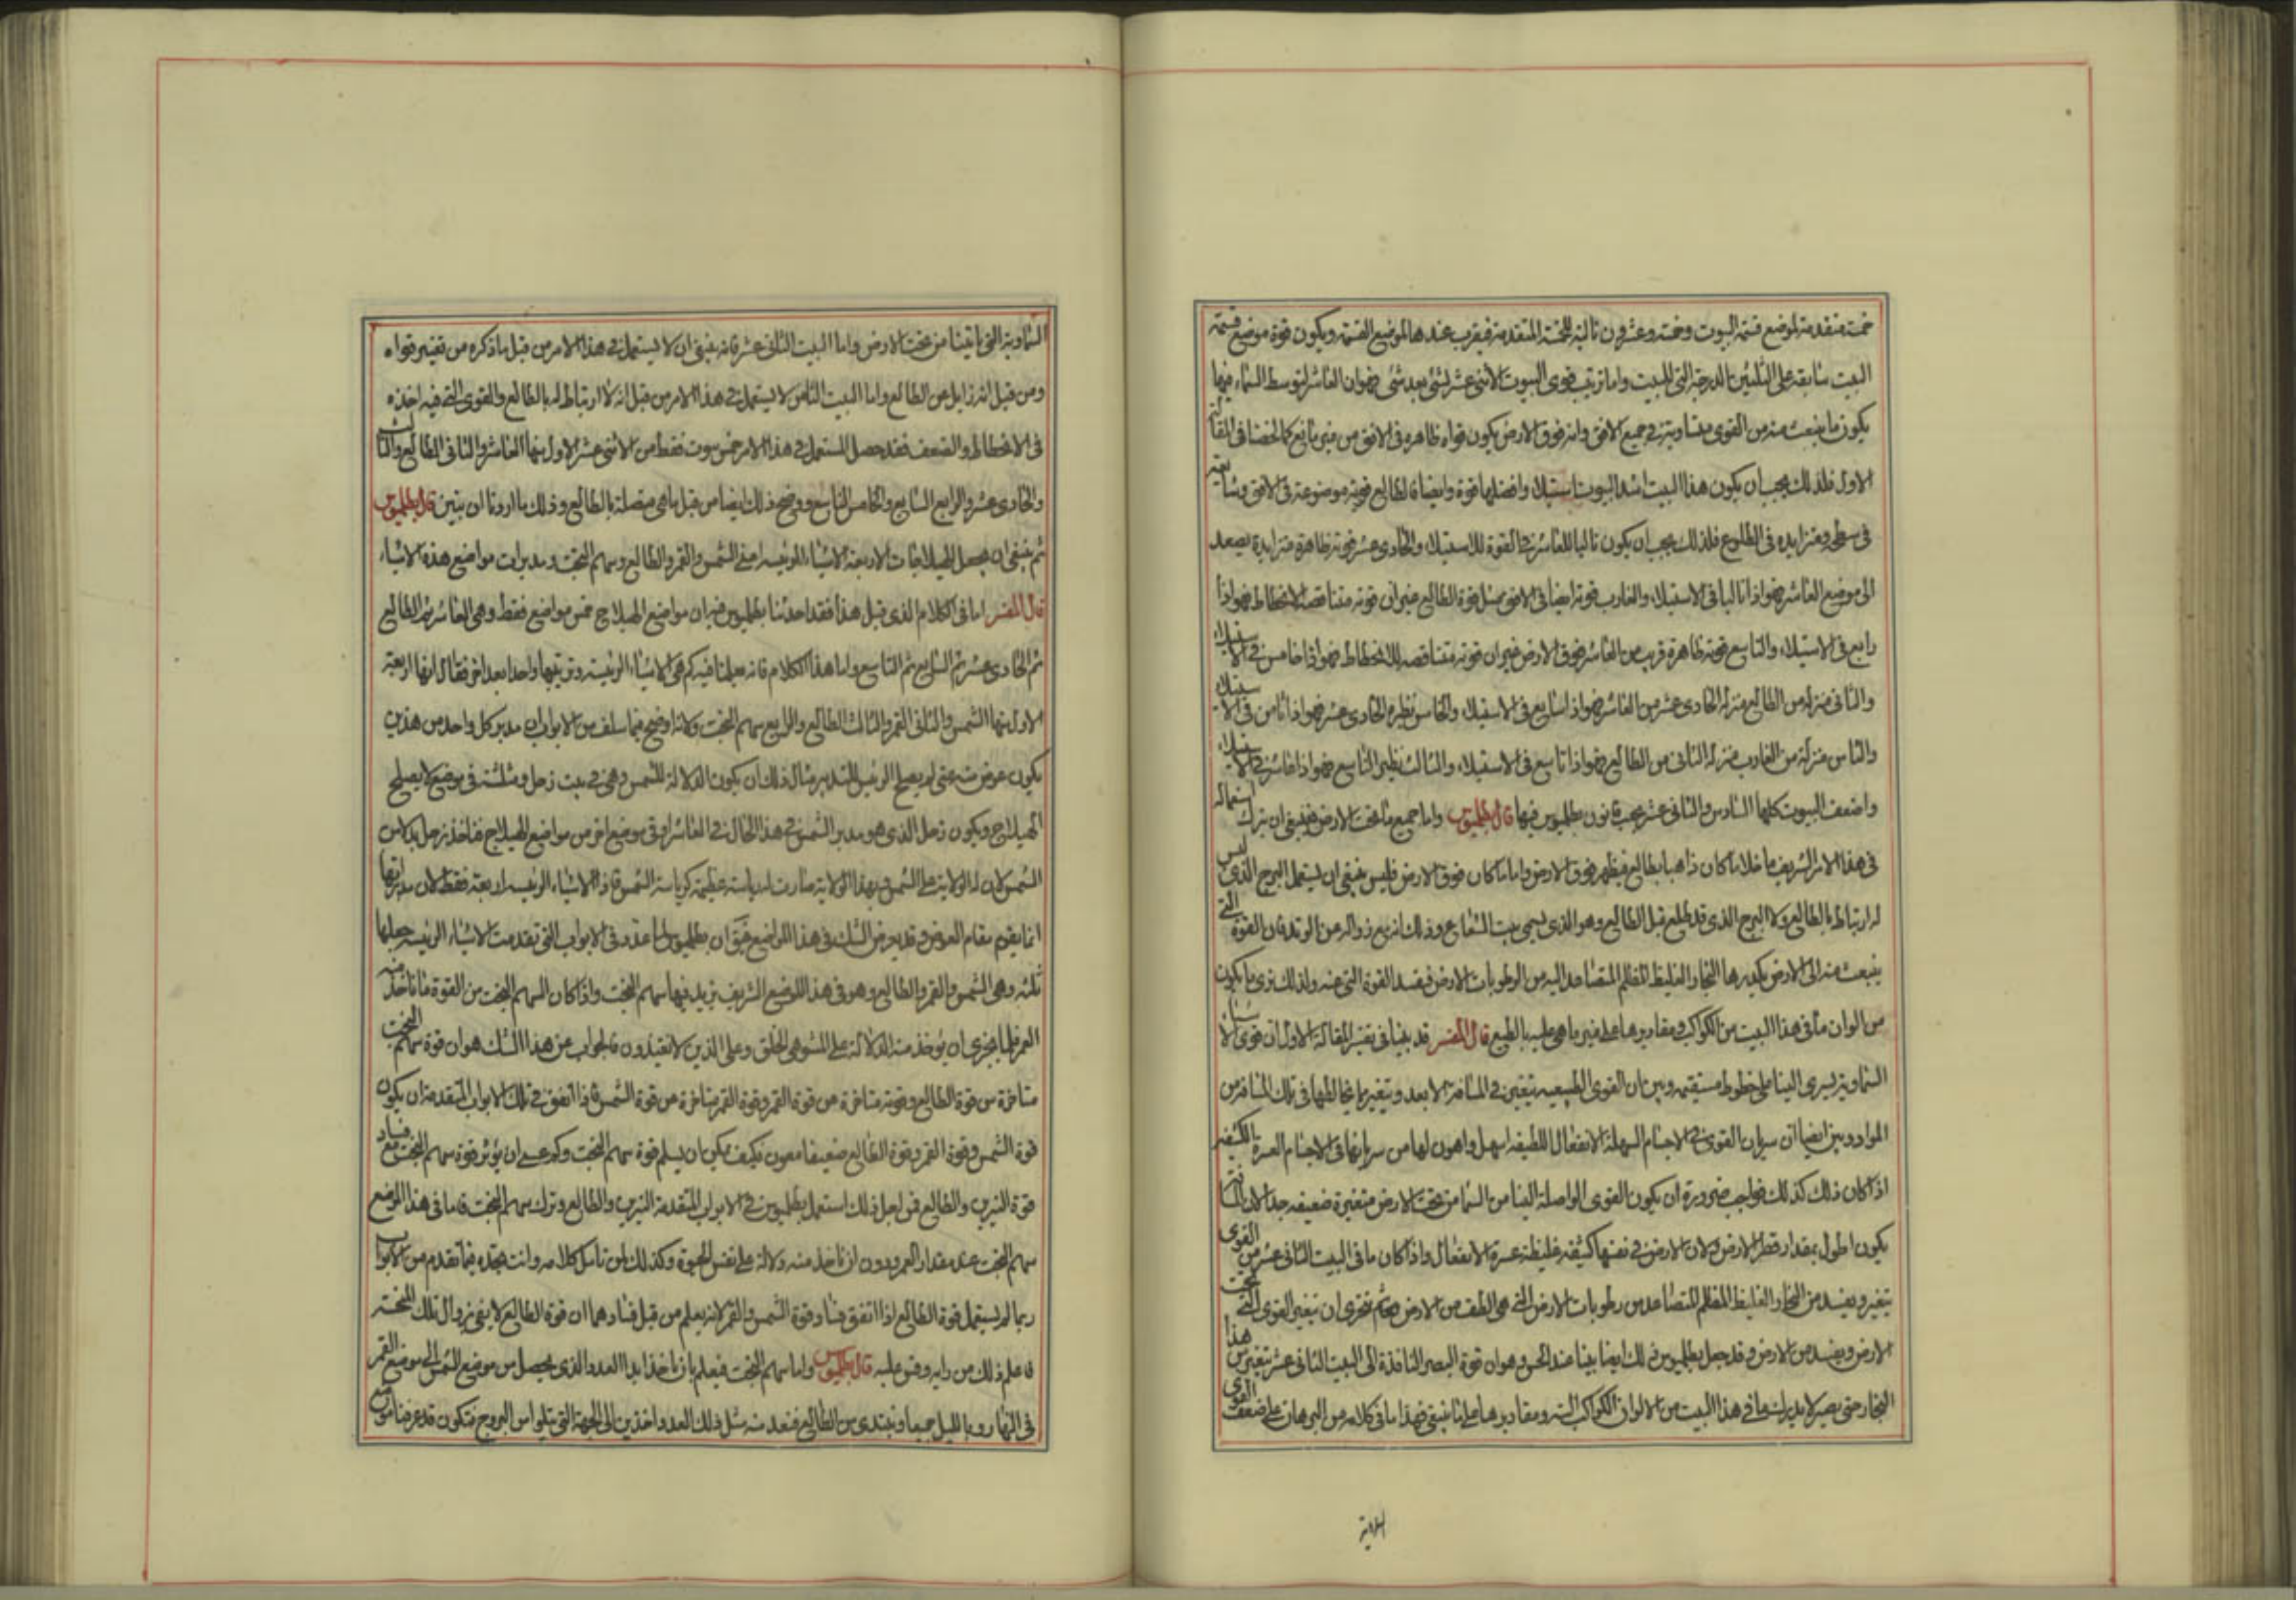 خمسة متقدمة لموضع قسمة البيوت وخمسة وعشرون تالية للخمسة المتقدمة فيقرب عندها لموضع القسمة ويكون قوة موضع قسمة
البيت سابقة على الثلثين الدرجة التى للبيت واما ترتيب قوى البيوت الاثنى عشر لشئ بعد شئ فهو ان العاشر لتوسط السماء فيها
يكون ما ينبعث منه من القوى متساوية فى جميع الافق وانه فوق الارض يكون قواه ظاهره فى الافق من غير مانع كما لخصنا فى المقالة
الاول فلذلك يجب ان يكون هذا البيت اشد البيوت استيلاء وافضلها قوة وايضا فالطالع قوته موضوعة فى الافق
فى سطحه متزايده فى الطلوع فلذلك يجب ان يكون تاليا للعاشر فى القوة للاستيلاء والحادى عشر قوته ظاهرة متزايدة يصعد
الى موضع العاشر فهو اذا ثالثا فى الاستيلاء والغارب قوته ايضا فى الافق بمثل قوة الطالع غير ان قوته متناقصة للانحطاط فهو اذا
رابع فى الاستيلاء والتاسع قوته ظاهرة قريب من العاشر فوق الارض غير ان قوته متناقصه للانحطاط فهو اذا خامس فى الاستيلاء
والثانى منزلة من الطالع منزلة الحادى عشر من العاشر فهو اذا سابع فى الاستيلاء والخامس نظيره الحادى عشر فهو اذا ثامن فى الاستيلاء
والسادس منزلة من الغارب منزلة الثانى من الطالع فهو اذا تاسع فى الاستيلاء والثالث نظير التاسع فهو اذا عاشر فى الاستيلاء
واضعف البيوت كلها السادس والثانى عشر بحسب قانون بطلميوس فيها قال بطلميوس واما جميع ما تحت الارض فينبغى ان يترك استعماله
فى هذا الامر الشريف ما خلا ما كان ذاهبا بطالع فيظهر فوق الارض واما ما كان فوق الارض فليس ينبغى ان يستعمل البرج الذى ليس
له ارتباط بالطالع ولا البرج الذى قد طلع قبل الطالع وهو الذى يسمى بيت الشعاع وذلك انه مع زواله من الوتد فان القوة التى
ينبعث منه الى الارض يكدرها البخار الغليظ المظلم المتصاعد اليه من الرطوبات الارض فيفسد القوة التى عنه ولذلك نرى ما يكون
من الوان ما فى هذا البيت من الكواكب ومقاديرها على غير ما هى عليه بالطبع قال المفسر قد بينا فى تفسير المقالة الاول ان قوى الاشيا
السماوية يسرى الينا على خطوط مستقيمه وبين ان القوى الطبيعيه يتغير فى المسافة الابعد ويتغير بما يخالطها فى تلك المسافة من
المواد وبين ايضا ان سريان القوى فى الاجسام السهلة الانفعال اللطيفه اسهل واهون لها من سريانها فى الاجسام العسرة الكثيفه
اذا كان ذلك كذلك فواجب ضرورة ان يكون القوى الواصلة الينا من السما من تحت الارض متغيرة ضعيفه جدا لان المسافة
يكون اطول بمقدار قطر الارض ولان الارض فى نفسها كثيفه غليظة عسرة الانفعال واذا كان ما فى البيت الثانى عشر من القوى
يتغير ويفسد من البخار الغليظ المظلم المتصاعد من رطوبات الارض التى هى الطف من الارض فحرى ان تتغير القوى التى تحت
الارض ويفسد من الارض وقد جعل بطلميوس ذلك ايضا بينا عند الحس وهو ان قوة البصر النافذة الى البيت الثانى عشر يتغير من هذا
البخار حتى يصير لا يدرك ما فى هذا البيت من الالوان الكواكب اليه ومقاديرها على ما ينبغى فهذا ما فى كلامه من البرهان على ضعف القوى
السماوية
السماوية التى تاتينا من تحت الارض واما البيت الثانى عشر فانه ينبغى ان لا يستعمل فى هذا الامر من قبل ما ذكره من تغيير قواه
ومن قبل انه زايل عن الطالع واما البيت الثامن لا يستعمل فى هذا الامر من قبل انه لا ارتباط له بالطالع والقوى التى فيه اخذه
فى الانحطاط والضعف فقد حصل المستعمل فى هذا الامر خمس بيوت فقط من الاثنى عشر الاول منها العاشر والثانى الطالع والثالث
والحادى عشر والرابع السابع والخامس التاسع ووضح ذلك ايضا من قبل ما هى متصلة بالطالع وذلك ما اردنا ان نبين قال بطلميوس
ثم ينبغى ان يجعل الهيلاجات الاربعة الاشياء الرئيسه اعنى الشمس والقمر والطالع وسهم البخت ومدبرات مواضع هذه الاشياء
قال المفسر اما فى الكلام الذى قبل هذا فقد حدثنا بطلميوس فيه ان مواضع الهيلاج خمس مواضع فقط وهى العاشر ثم الطالع
ثم الحادى عشر ثم السابع ثم التاسع واما هذا الكلام فانه يعلمنا فيه كم هى الاشياء الرئيسة وترتيبها واحدا بعد اخر فقال انها اربعة
الاول منها الشمس والثانى القمر والثالث الطالع والرابع سهم البخت وكانه اوضح فيما سلف من الابواب مدبر كل واحد من هذين
يكون عوض منه متى لم يصلح الرئيس للتدبير مثال ذلك ان يكون الدلالة للشمس وهى فى بيت زحل ومثلثته فى موضع لا يصلح
للهيلاج ويكون زحل الذى هو مدبر الشمس فى هذا الحال فى العاشر او فى موضع اخر من مواضع الهيلاج فناخذ زحل بدلا من
الشمس لان له الولاية على الشمس وبهذا الولاية صارت له رياسة عظيمة كرياسة الشمس فاذا الاشياء الرئيسه اربعة فقط لان مدبراتها
انما يقوم مقام العوض وقد يعرض الشك فى هذا الموضع فى ان بطلميوس لما عدد فى الابواب التى تقدمت الاشياء الرئيسه جعلها
ثلثه وهى الشمس والقمر والطالع وهو فى هذا الموضع الشريف يزيد فيها سهم البخت واذا كان السهم البخت من القوة ما ناخذ منه
العمر فبالحرى ان يؤخذ منه الدلالة على المشوهى الخلق وعلى الذين لا يغتذون فالجواب عن هذا الشك هو ان قوة سهم البخت
متاخرة من قوة الطالع وقوته متاخرة من قوة القمر وقوة القمر متاخرة من قوة الشمس فاذا اتفق فى تلك الابواب المتقدمة ان يكون
قوة الشمس وقوة القمر وقوة الطالع ضعيفا فكيف يمكن ان يسلم قوة سهم البخت وكم عسى ان يؤثر قوة سهم البخت مع فساد
قوة النيرين والطالع فمن اجل ذلك استعمل بطلميوس فى الابواب المتقدمة النيرين والطالع وترك سهم البخت فاما فى هذا الموضع
سهم البخت عند مقدار العمر ودون ان ناخذ منه دلالة على نفس الحيوة وكذلك لمن تامل كلامه وانت تجده فيما تقدم من الابواب
ربما لم يستعمل قوة الطالع اذا اتفق فساد قوة الشمس والقمر لانه يعلم من قبل فسادهما ان قوة الطالع لا يفى بزوال تلك المنحسة
فاعلم ذلك من رايه وقس عليه قال بطلميوس واما سهم البخت فيعلم بان ناخذ ابدا العدد الذى يحصل من موضع الشمس الى موضع القمر
فى النهار وبالليل جميعا ونبتدى من الطالع فنعد منه مثل ذلك العدد اخذين الى الجهة التى يتلوا من البروج فتكون قد عرفنا موضع